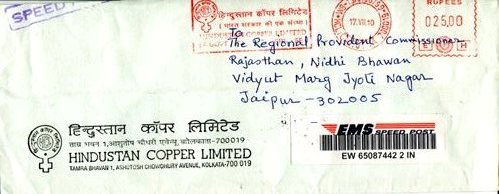 SPEED
हिन्दुस्तान कॉपर लिमिटेड
( भारत सरकार की एक संस्था )
HINDUSTAN COPPER LIMITED
17.VIII.10
RUPEES
02500
E H
To
The Regional Provident Commissioner
Rajasthan, Nidhi Bhawan
Vidyut Marg Jyoti Nagar
Jaipur - 302005
हिन्दुस्तान कॉपर लिमिटेड
ताम्र भवन 1,आशुतोष चौधरी एवेन्यू, कोलकाता-700019
HINDUSTAN COPPER LIMITED
TAMRA BHAVAN 1, ASHUTOSH CHOWDHURY AVENUE, KOLKATA-700 019
EMS SPEED POST
EW 65087442 2 IN